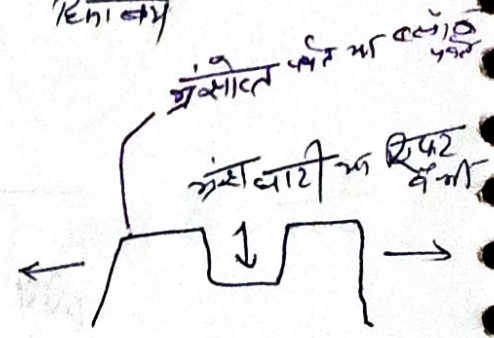 हिमालय
भ्रंशोत्थ पर्वत या ब्लॉक पर्वत
भ्रंश घाटी या रिफ्ट वैली